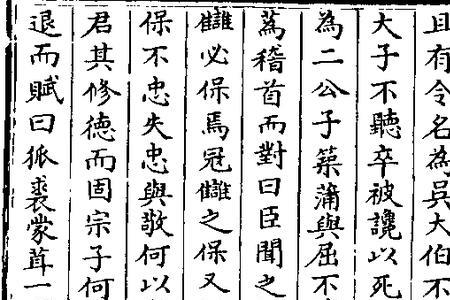 且有令名為吳大伯不
大子不聽卒被讒以死
為二公子築蒲與屈不
蒍稽首而對曰臣聞之
讎必保焉冦讎之保又
保不忠失忠與敬何以
君其修德而固宗子何
退而賦曰狐裘蒙茸一